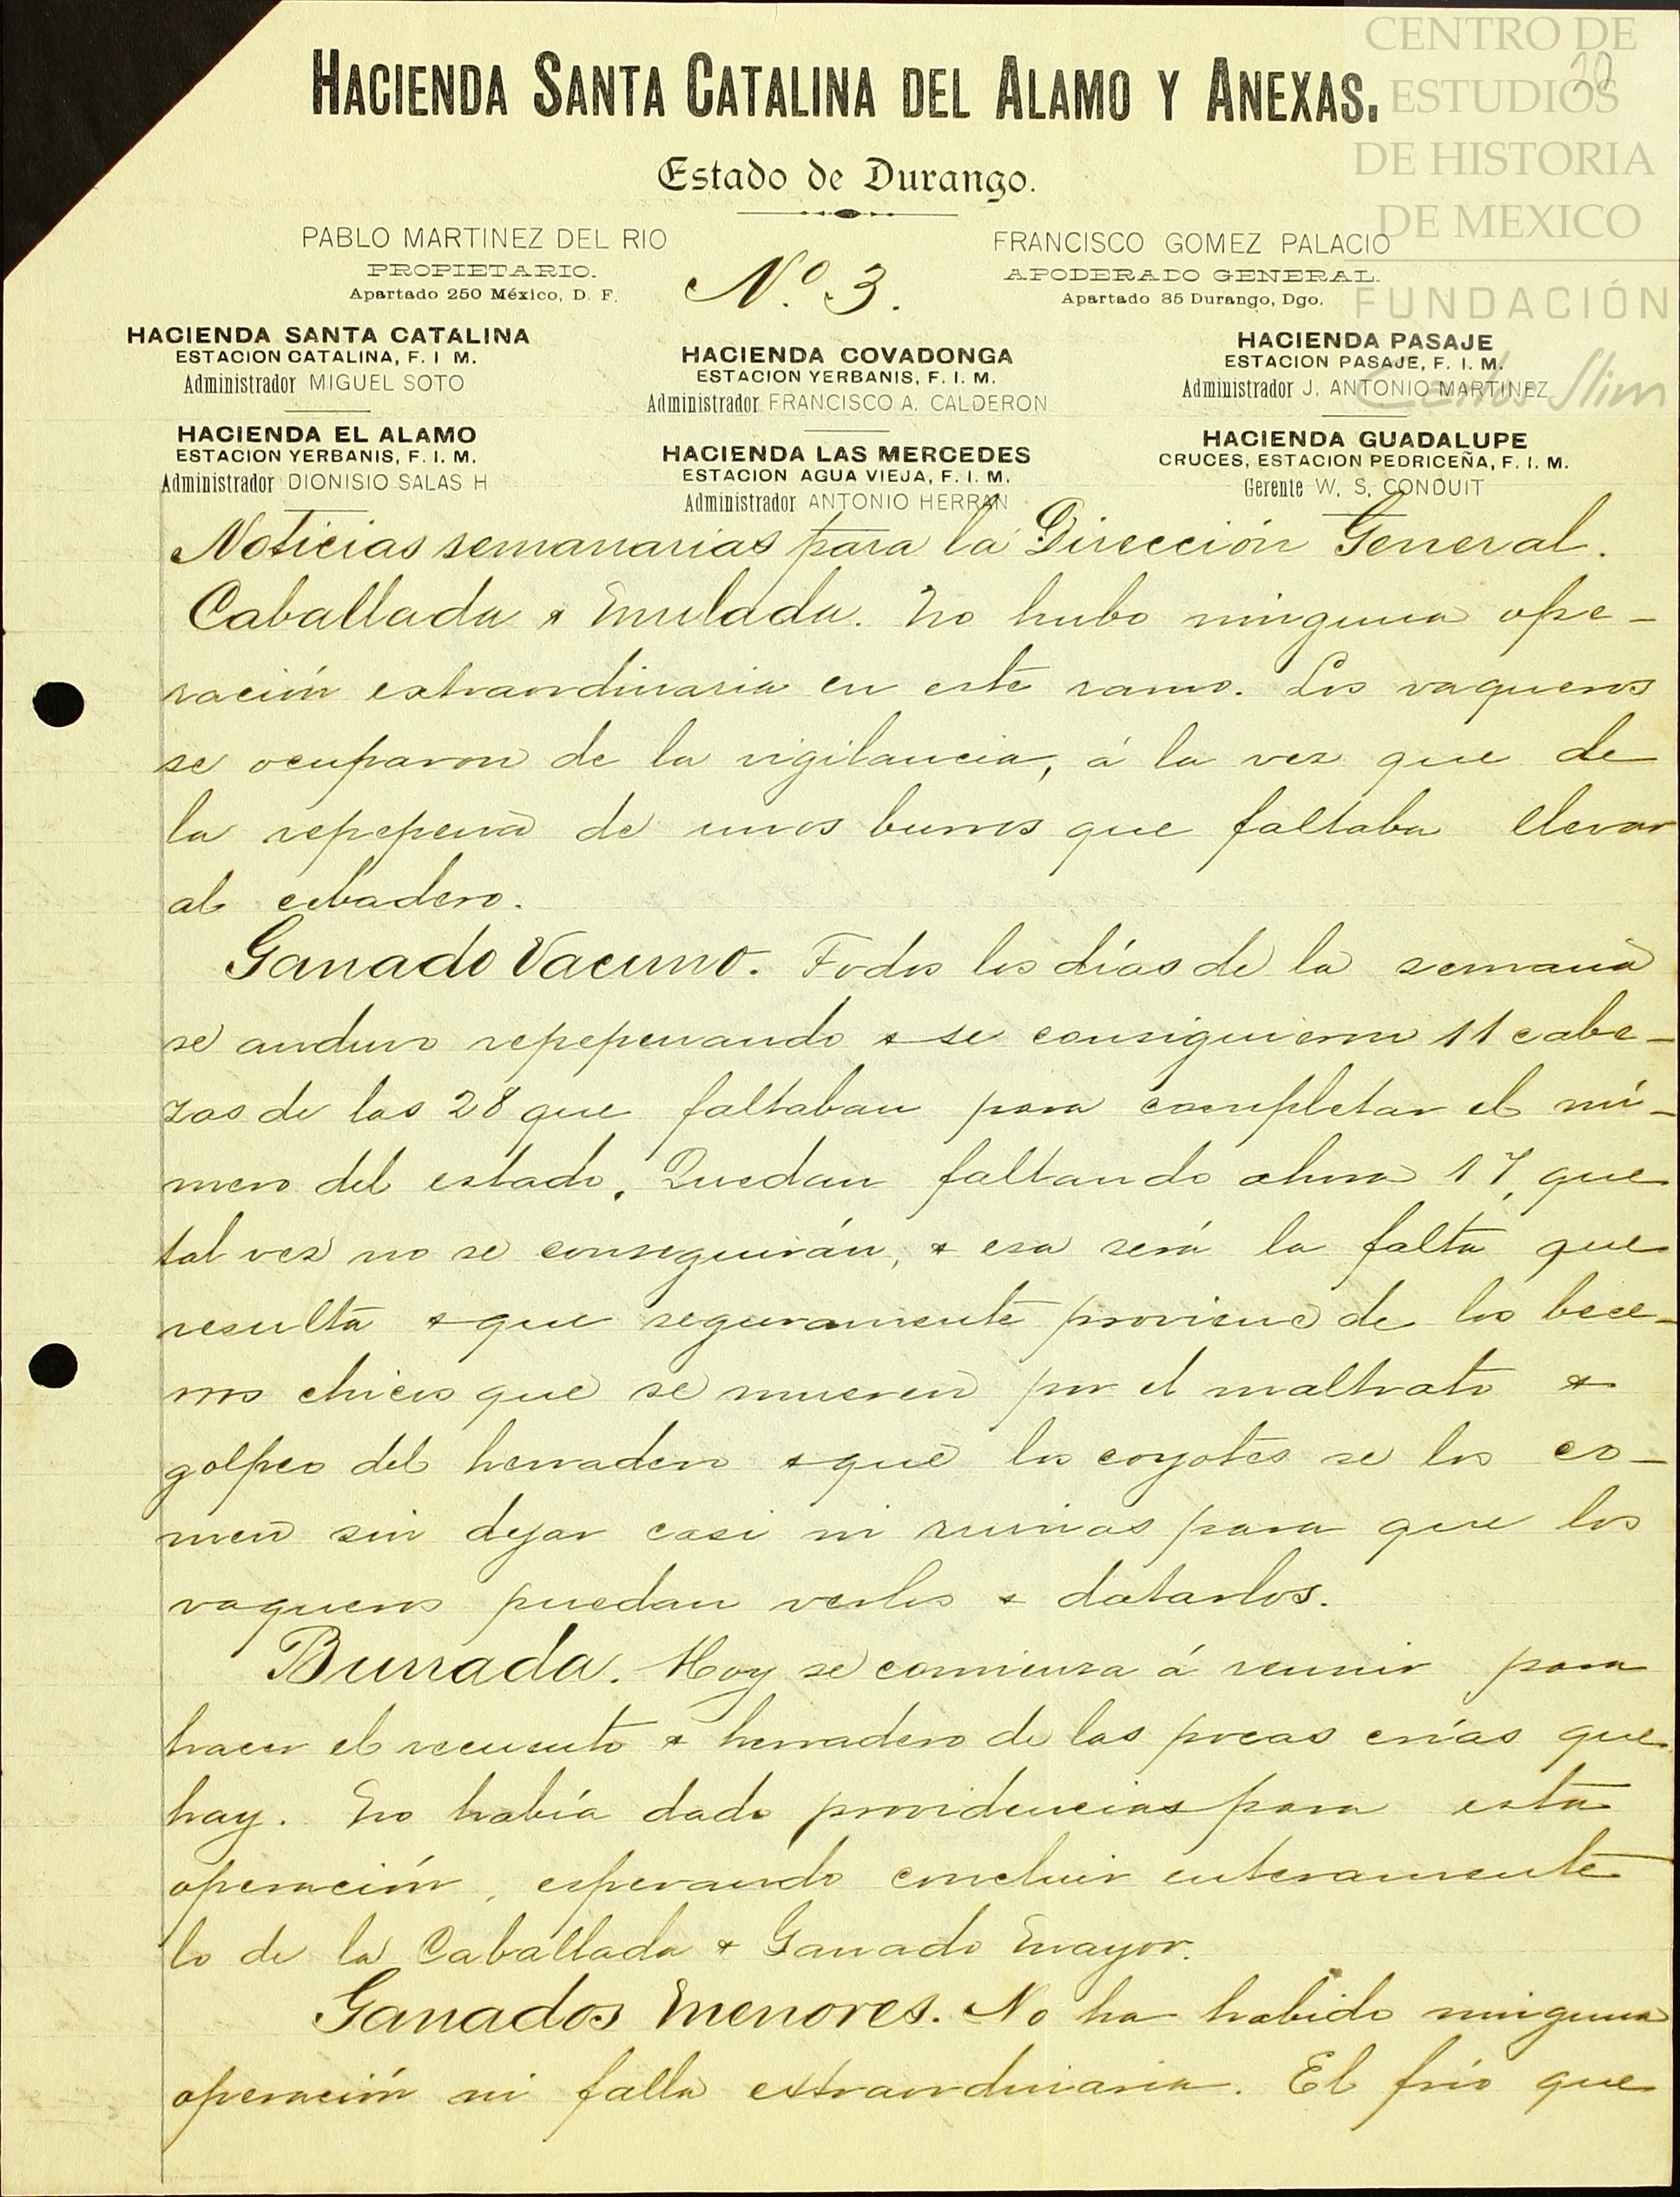 CENTRO DE
ESTUDIOS
DE HISTORIA
DE MEXICO
FUNDACIÓN
Carlos Slim
20
HACIENDA SANTA CATALINA DEL ALAMO Y ANEXAS.
Estado de Durango.
PABLO MARTINEZ DEL RIO
PROPIETARIO.
Apartado 250 México, D. F.
Nº 3.
FRANCISCO GOMEZ PALACIO
APODERADO GENERAL.
Apartado 35 Durango, Dgo.
HACIENDA SANTA CATALINA
ESTACION CATALINA, F. I M.
Administrador MIGUEL SOTO
HACIENDA EL ALAMO
ESTACION YERBANIS, F. I. M.
Administrador DIONISIO SALAS H
HACIENDA COVADONGA
ESTACION YERBANIS, F. I. M.
Administrador FRANCISCO A. CALDERON
HACIENDA LAS MERCEDES
ESTACION AGUA VIEJA, F. I. M.
Administrador ANTONIO HERRAN
HACIENDA PASAJE
ESTACION PASAJE, F. I. M.
Administrador J. ANTONIO MARTINEZ
HACIENDA GUADALUPE
CRUCES, ESTACION PEDRICEÑA, F. I. M.
Gerente W. S. CONDUIT
Noticias semanarias para la Dirección General.
Caballada & Mulada. No hubo ninguna ope-
ración extraordinaria en este ramo. Los vaqueros
se ocuparon de la vigilancia, á la vez que de
la repepena de unos burros que faltaba llevar
al cebadero.
Ganado Vacuno. Todos los días de la semana
se anduvo repepenando & se consiguieron 11 cabe-
zas de las 28 que faltaban para completar el nú-
mero del estado. Quedan faltando ahora 17, que
tal vez no se conseguirán, & esa será la falta que
resulta & que seguramente proviene de los bece-
rros chicos que se mueren por el maltrato &
golpeo del herradero & que los coyotes se los co-
men sin dejar casi ni ruinas para que los
vaqueros puedan verlos & datarlos.
Burrada. Hoy se comienza á reunir para
hacer el recuento & herradero de las pocas crías que
hay. No había dado providencias para esta
operación, esperando concluir enteramente
lo de la Caballada & Ganado Mayor.
Ganados Menores. No ha habido ninguna
operación ni falla extraordinaria. El frío que